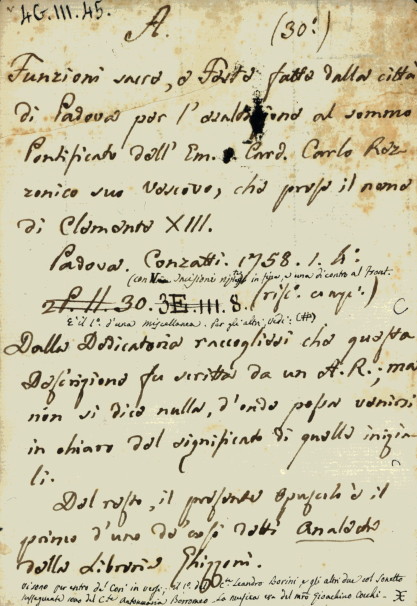 4G.III.45.
A. (30:)
Funzioni sacre, e Feste fatte dalla città
di Padova per l'esaltazione al sommo
Pontificato dell'Em. Card. Carlo Rez-
zonico suo Vescovo, che prese il nome
di Clemente XIII.
Padova. Conzatti. 1758. 1. h:
(con incisioni in fine, e una di contro al Front.
30. 3E.III.8. (
E' il 1.º d'una miscellanea. Per gli altri vedi: (#)
Dalla Dedicatoria raccogliessi che questa
Descrizione fu scritta da un A.R.; ma
non si dice nulla, d'onde possa venirsi
in chiaro del significato di quelle inizia-
li.
Del resto, il presente Opuscolo è il
primo d'uno de' così detti Analecta
della Libreria Ghironi.
vi sono per entro de' Cori in versi; il 1º del Cte. Leandro Borini e gli altri due col Sonetto
susseguente sono del Cte Antonmaria Borromeo. La musica era del mro Gioachino Cocchi.